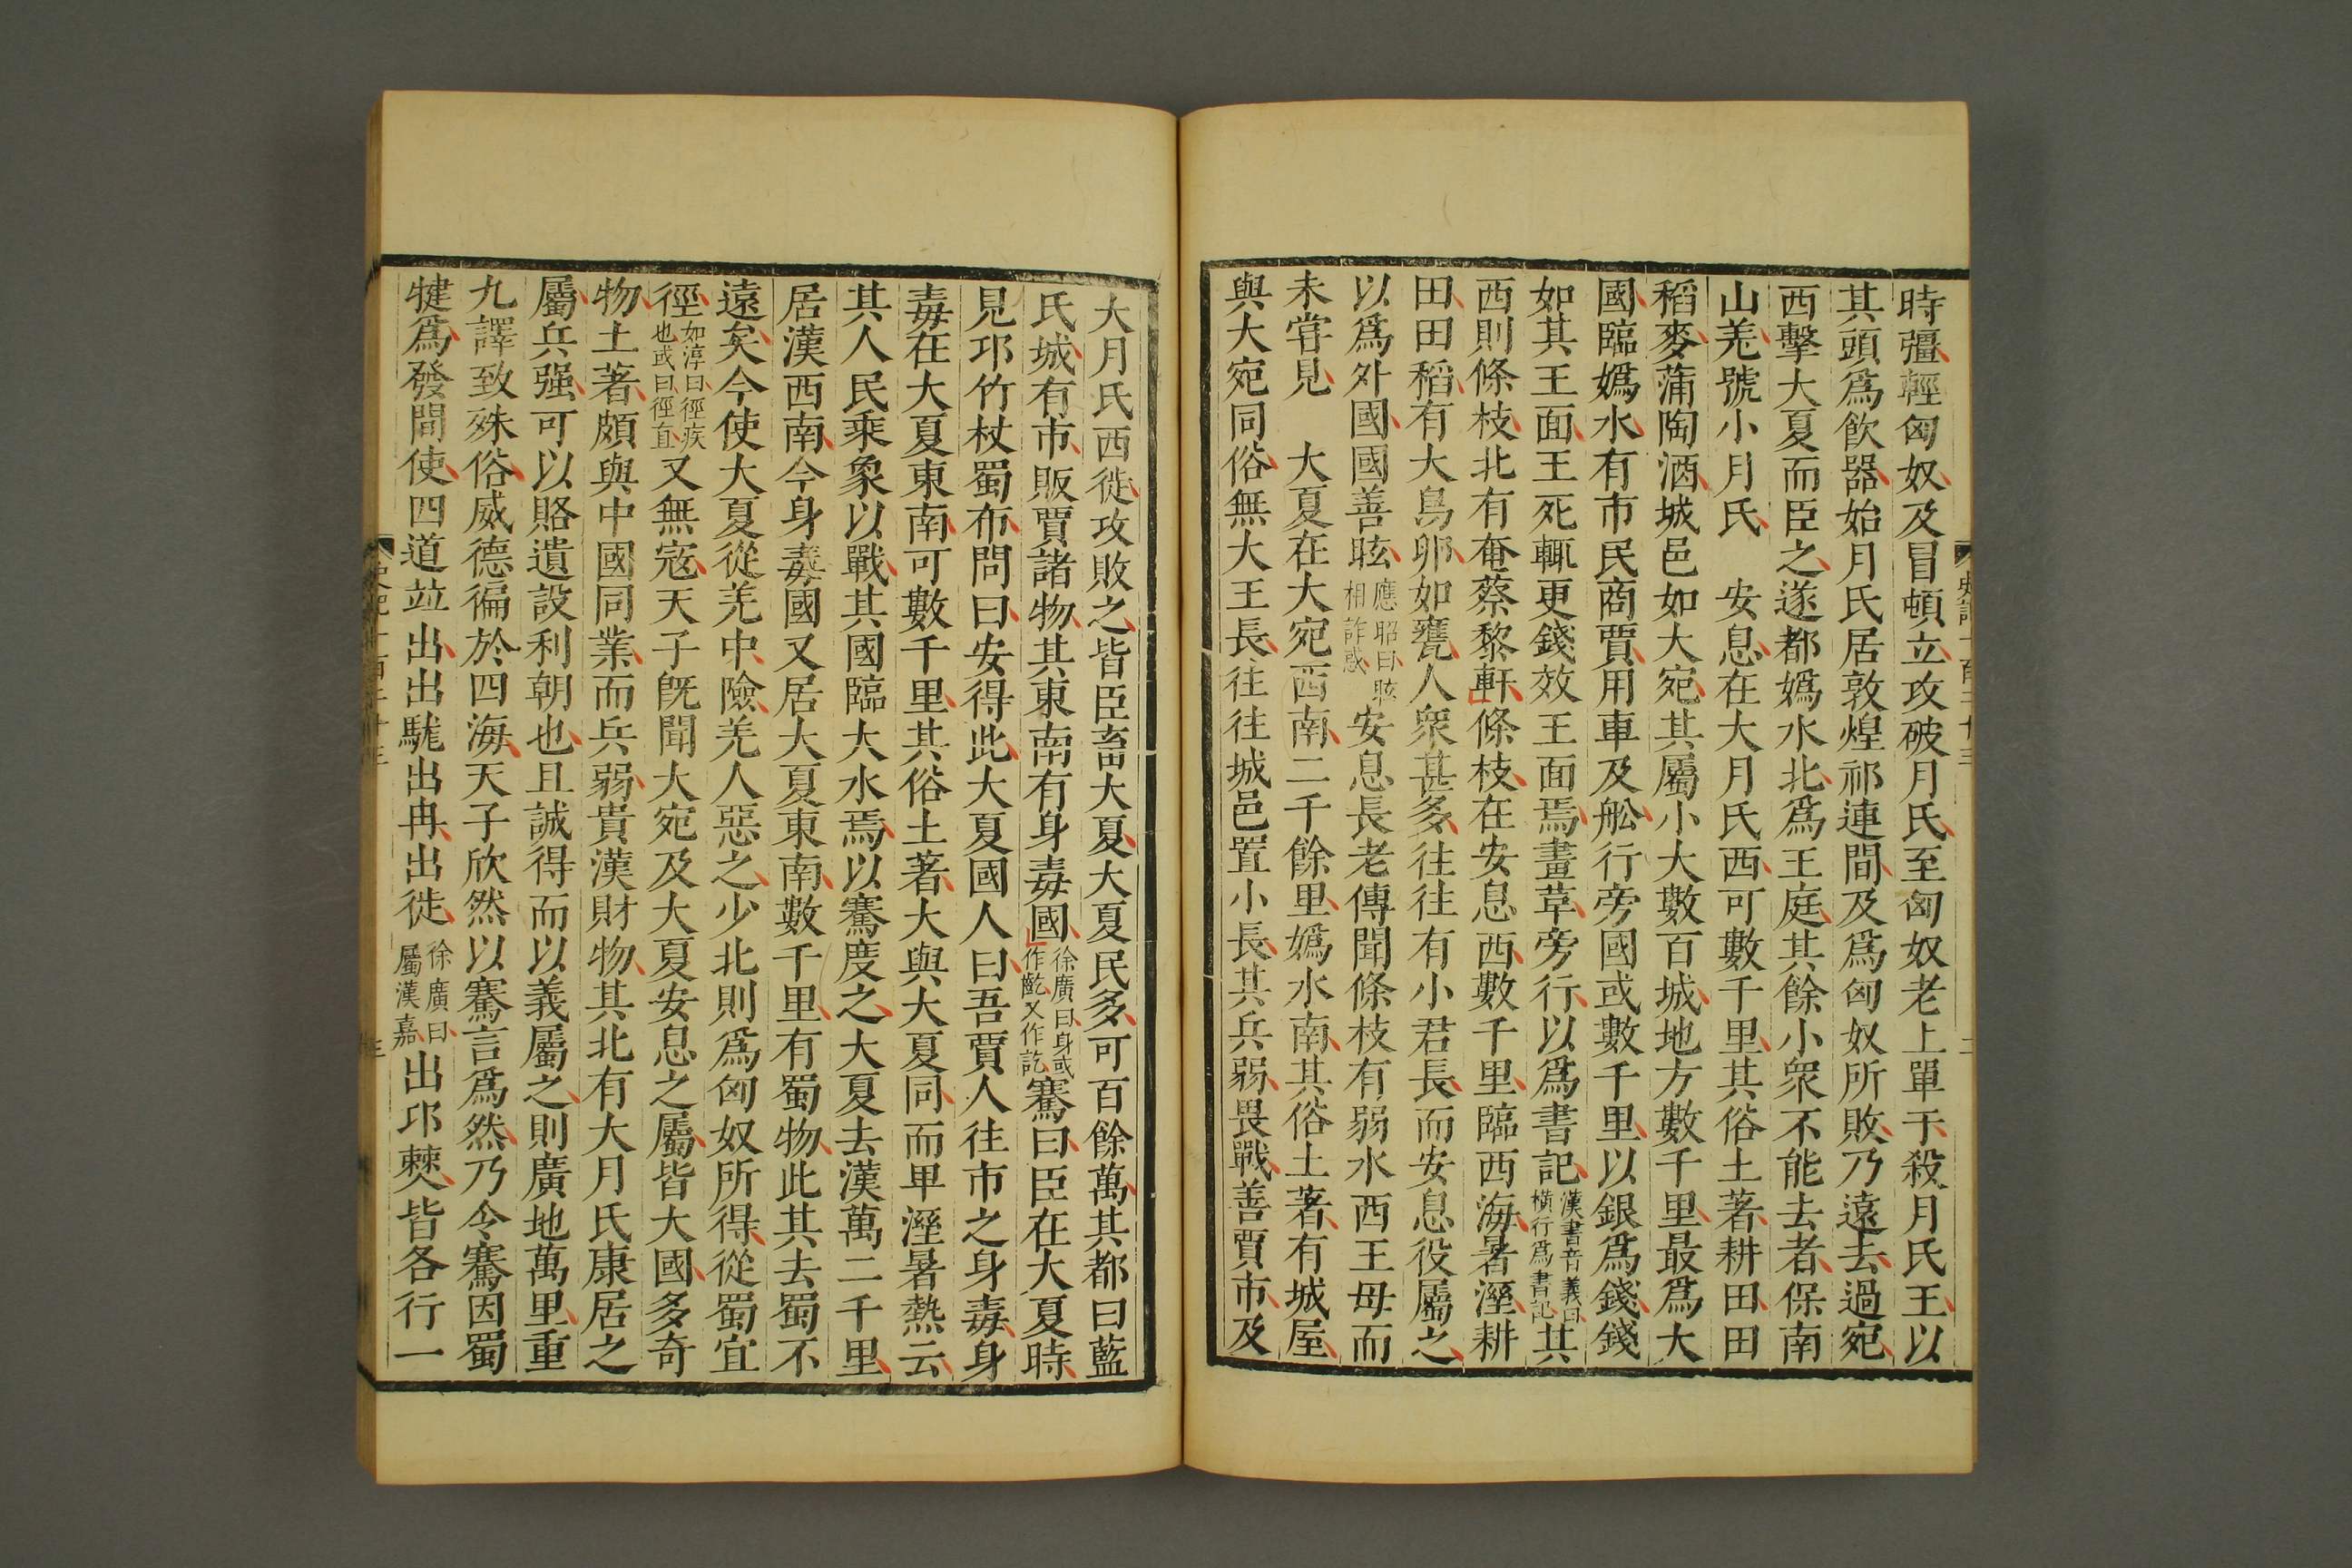 時彊輕匈奴及冒頓立攻破月氏至匈奴老上單于殺月氏王以
其頭爲飮器始月氏居敦煌祁連間及爲匈奴所敗乃遠去過宛
西擊大夏而臣之遂都媯水北爲王庭其餘小衆不能去者保南
山羌號小月氏 安息在大月氏西可數千里其俗土著耕田田
稻麥蒲陶酒城邑如大宛其屬小大數百城地方數千里最爲大
國臨媯水有市民商賈用車及舩行旁國或數千里以銀爲錢錢
如其王面王死輒更錢效王面焉畫革旁行以爲書記漢書音義曰橫行爲書記其
西則條枝北有奄蔡黎軒條枝在安息西數千里臨西海暑溼耕
田田稻有大鳥卵如甕人衆甚多往往有小君長而安息役屬之
以爲外國國善眩應昭曰眩相詐惑安息長老傳聞條枝有弱水西王母而
未甞見 大夏在大宛西南二千餘里媯水南其俗土著有城屋
與大宛同俗無大王長往往城邑置小長其兵弱畏戰善賈市及
大月氏西徙攻敗之皆臣畜大夏大夏民多可百餘萬其都曰藍
氏城有市販賈諸物其東南有身毒國徐廣曰身或作乾又作訖騫曰臣在大夏時
見邛竹杖蜀布問曰安得此大夏國人曰吾賈人往市之身毒身
毒在大夏東南可數千里其俗土著大與大夏同而卑溼暑熱云
其人民乘象以戰其國臨大水焉以騫度之大夏去漢萬二千里
居漢西南今身毒國又居大夏東南數千里有蜀物此其去蜀不
遠矣今使大夏從羌中險羌人惡之少北則爲匈奴所得從蜀宜
徑如淳曰徑疾也或曰徑直又無寇天子旣聞大宛及大夏安息之屬皆大國多奇
物土著頗與中國同業而兵弱貴漢財物其北有大月氏康居之
屬兵强可以賂遺設利朝也且誠得而以義屬之則廣地萬里重
九譯致殊俗威德徧於四海天子欣然以騫言爲然乃令騫因蜀
犍爲發間使四道竝出出駹出冉出徙徐廣曰屬漢嘉出邛僰皆各行一